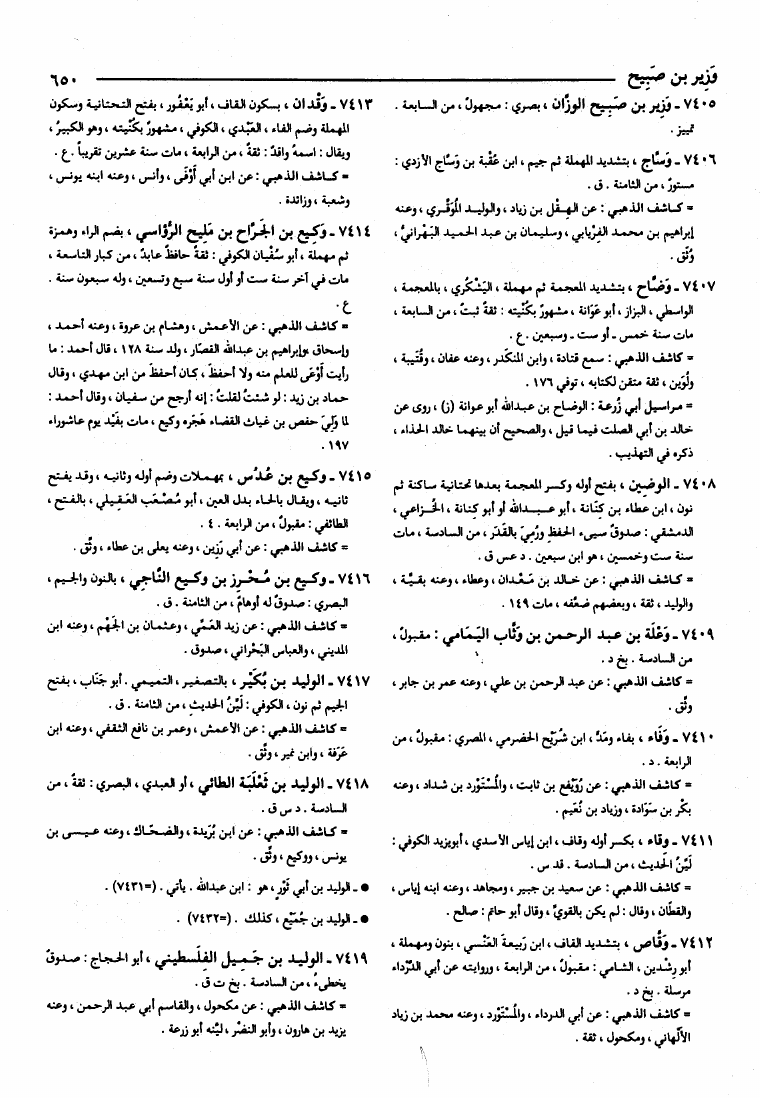 وَزِير بن صَبِيح
٦٥٠
٧٤٠٥ ـ وَزِير بن صَبِيح الوزَّان ، بصري : مجهولٌ ، من السابعة .
تمييز .
٧٤٠٦ ـ وَسَّاج ، بتشديد المهملة ثم جيم ، ابن عُقْبة بن وَسَّاج الأزدي :
مستورٌ ، من الثامنة . ق .
= كاشف الذهبي : عن الهِقْل بن زياد ، والوليد المُوَقَّري ، وعنه
إبراهيم بن محمد الفِرْيابي ، وسليمان بن عبد الحميد البَهْرانيُّ ،
وُثِّق .
٧٤٠٧ ـ وَضَّاح ، بتشديد المعجمة ثم مهملة ، اليَشْكُري ، بالمعجمة ،
الواسطي ، البزاز ، أبو عَوَانة ، مشهورٌ بكُنْيته : ثقةٌ ثبتٌ ، من السابعة ،
مات سنة خمس ـ أو ست ـ وسبعين . ع .
= كاشف الذهبي : سمع قتادة ، وابن المنكدر ، وعنه عفان ، وقُتَيبة ،
ولُوَين ، ثقة متقن لكتابه ، توفي ١٧٦ .
= مراسيل أبي زُرعة : الوضاح بن عبدالله أبو عوانة (ز) ، روى عن
خالد بن أبي الصلت فيما قيل ، والصحيح أن بينهما خالد الحذاء ،
ذكره في التهذيب .
٧٤٠٨ ـ الوضين ، بفتح أوله وكسر المعجمة بعدها تحتانية ساكنة ثم
نون ، ابن عطاء بن كِنَانة ، أبو عبدالله أو أبو كِنَانة ، الخُزَاعي ،
الدمشقي : صدوقٌ سيىء الحفظِ ورُمِيَ بالقَدَر ، من السادسة ، مات
سنة ست وخمسين ، هو ابن سبعين . د عس ق .
= كاشف الذهبي : عن خالد بن مَعْدان ، وعطاء ، وعنه بقيّة ،
والوليد ، ثقة ، وبعضهم ضعّفه ، مات ١٤٩ .
٧٤٠٩ ـ وَعْلَة بن عبد الرحمن بن وَثَّاب اليَمَامي : مقبولٌ ،
من السادسة . بخ د .
= كاشف الذهبي : عن عبد الرحمن بن علي ، وعنه عمر بن جابر ،
وثّق .
٧٤١٠ ـ وَفَاء ، بفاء ومَدٍّ ، ابن شُرَيْح الحضرمي ، المصري : مقبولٌ ، من
الرابعة . د .
= كاشف الذهبي : عن رُوَيْفع بن ثابت ، والمُسْتَوْرد بن شداد ، وعنه
بكْر بن سَوَادة ، وزياد بن نُعَيم .
٧٤١١ ـ وقاء ، بكسر أوله وقاف ، ابن إياس الأسدي ، أبويزيد الكوفي :
لَيِّنُ الحديث ، من السادسة . قد س .
= كاشف الذهبي : عن سعيد بن جبير ، ومجاهد ، وعنه ابنه إياس ،
والقطّان ، وقال : لم يكن بالقويِّ ، وقال أبو حاتم : صالح .
٧٤١٢ ـ وَقَّاص ، بتشديد القاف ، ابن رَبيعةَ العَنْسي ، بنون ومهملة ،
أبو رِشْدين ، الشامي : مقبولٌ ، من الرابعة ، وروايته عن أبي الدَّرْداء
مرسلة . بخ د .
= كاشف الذهبي : عن أبي الدرداء ، والمُسْتَوْرد ، وعنه محمد بن زياد
الأَلْهاني ، ومكحول ، ثقة .
٧٤١٣ ـ وَقْدان ، بسكون القاف ، أبو يَعْفُور ، بفتح التحتانية وسكون
المهملة وضم الفاء ، العَبْدي ، الكوفي ، مشهورٌ بكُنْيته ، وهو الكبيرُ ،
ويقال : اسمهُ واقدٌ : ثقةٌ ، من الرابعة ، مات سنة عشرين تقريباً . ع .
= كاشف الذهبي : عن ابن أبي أَوْفَى ، وأنس ، وعنه ابنه يونس ،
وشعبة ، وزائدة .
٧٤١٤ ـ وَكِيع بن الجَرَّاح بن مَلِيح الرُّؤاسي ، بضم الراء وهمزة
ثم مهملة ، أبو سُفْيان الكوفي : ثقةٌ حافظٌ عابدٌ ، من كبار التاسعة ،
مات في آخر سنة ست أو أول سنة سبع وتسعين ، وله سبعون سنة .
ع .
= كاشف الذهبي : عن الأعمش ، وهشام بن عروة ، وعنه أحمد ،
وإسحاق ، وإبراهيم بن عبدالله القصّار ، ولد سنة ١٢٨ ، قال أحمد : ما
رأيت أَوْعَى للعلم منه ولا أحفظَ ، كان أحفظَ من ابن مهدي ، وقال
حماد بن زيد : لو شئتُ لقلتُ : إنه أرجح من سفيان ، وقال أحمد :
لما وَلِيَ حفص بن غياث القضاء هَجَره وكيع ، مات بفَيْد يوم عاشوراء
١٩٧ .
٧٤١٥ ـ وكيع بن عُدُس ، بمهملات وضم أوله وثانيه ، وقد يفتح
ثانيه ، ويقال بالحاء بدل العين ، أبو مُصْعَب العَقِيلي ، بالفتح ،
الطائفي : مقبولٌ ، من الرابعة . ٤ .
= كاشف الذهبي : عن أبي رَزِين ، وعنه يعلى بن عطاء ، وثّق .
٧٤١٦ ـ وكيع بن مُحْرِز بن وكيع النَّاجي ، بالنون والجيم ،
البصري : صدوقٌ له أوهامٌ ، من الثامنة . ق .
= كاشف الذهبي : عن زيد العَمِّي ، وعثمان بن الجَهْم ، وعنه ابن
المديني ، والعباس البَحْراني ، صدوق .
٧٤١٧ ـ الوليد بن بُكَيْر ، بالتصغير ، التميمي . أبو جَنَاب ، بفتح
الجيم ثم نون ، الكوفي : لَيِّنُ الحديثِ ، من الثامنة . ق .
= كاشف الذهبي : عن الأعمش ، وعمر بن نافع الثقفي ، وعنه ابن
عَرَفة ، وابن نمير ، وثّق .
٧٤١٨ ـ الوليد بن ثَعْلَبَة الطائي ، أو العبدي ، البصري : ثقةٌ ، من
السادسة . د س ق .
= كاشف الذهبي : عن ابن بُرَيدة ، والضحّاك ، وعنه عيسى بن
يونس ، ووكيع ، وثّق .
● ـ الوليد بن أبي ثَوْرٍ ، هو : ابن عبدالله . يأتي . (=٧٤٣١) .
● ـ الوليد بن جُمَيْع ، كذلك . (=٧٤٣٢) .
٧٤١٩ ـ الوليد بن جَمِيل الفِلَسطيني ، أبو الحجاج : صدوقٌ
يخطىءُ ، من السادسة . بخ ت ق .
= كاشف الذهبي : عن مكحول ، والقاسم أبي عبد الرحمن ، وعنه
يزيد بن هارون ، وأبو النضْر ، ليّنه أبو زرعة .